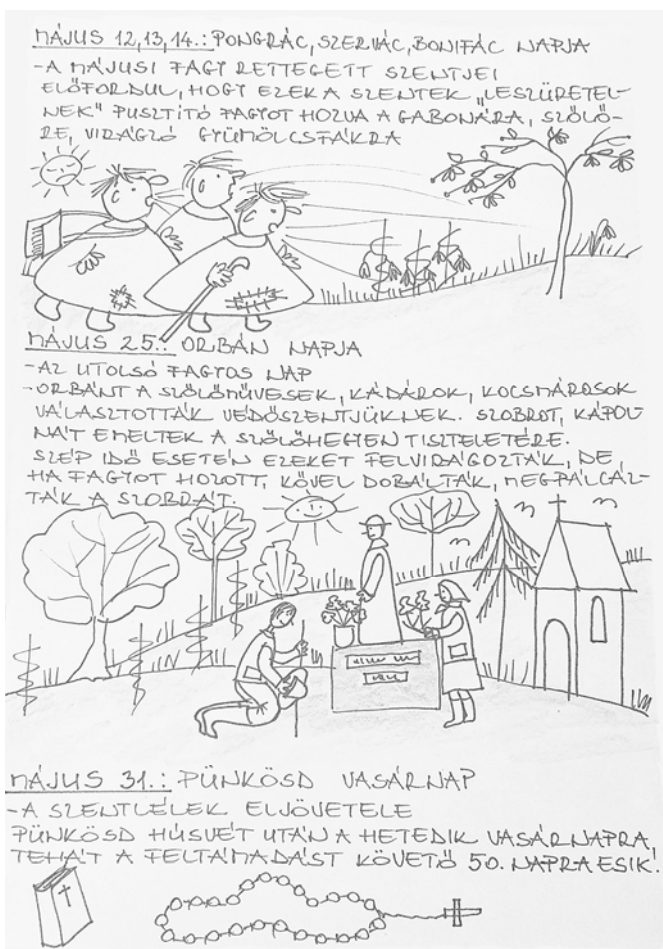 MÁJUS 12,13,14.: PONGRÁC, SZERVÁC, BONIFÁC NAPJA
-A MÁJUSI FAGY RETTEGETT SZENTJEI
ELŐFORDUL, HOGY EZEK A SZENTEK „LESZÜRETEL-
NEK" PUSZTÍTÓ FAGYOT HOZVA A GABONÁRA, SZŐLŐ-
RE, VIRÁGZÓ GYÜMÖLCSFÁKRA
MÁJUS 25.: ORBÁN NAPJA
-AZ UTOLSÓ FAGYOS NAP
-ORBÁNT A SZŐLŐMŰVESEK, KÁDÁROK, KOCSMÁROSOK
VÁLASZTOTTÁK VÉDŐSZENTJÜKNEK. SZOBROT, KÁPOL
NÁT EMELTEK A SZŐLŐHEGYEN TISZTELETÉRE.
SZÉP IDŐ ESETÉN EZEKET FELVIRÁGOZTÁK, DE
HA FAGYOT HOZOTT, KŐVEL DOBÁLTÁK, MEGPÁLCÁZ-
TÁK A SZOBRÁT.
MÁJUS 31.: PÜNKÖSD VASÁRNAP
-A SZENTLÉLEK ELJÖVETELE
PÜNKÖSD HÚSVÉT UTÁN A HETEDIK VASÁRNAPRA,
TEHÁT A FELTÁMADÁST KÖVETŐ 50. NAPRA ESIK.